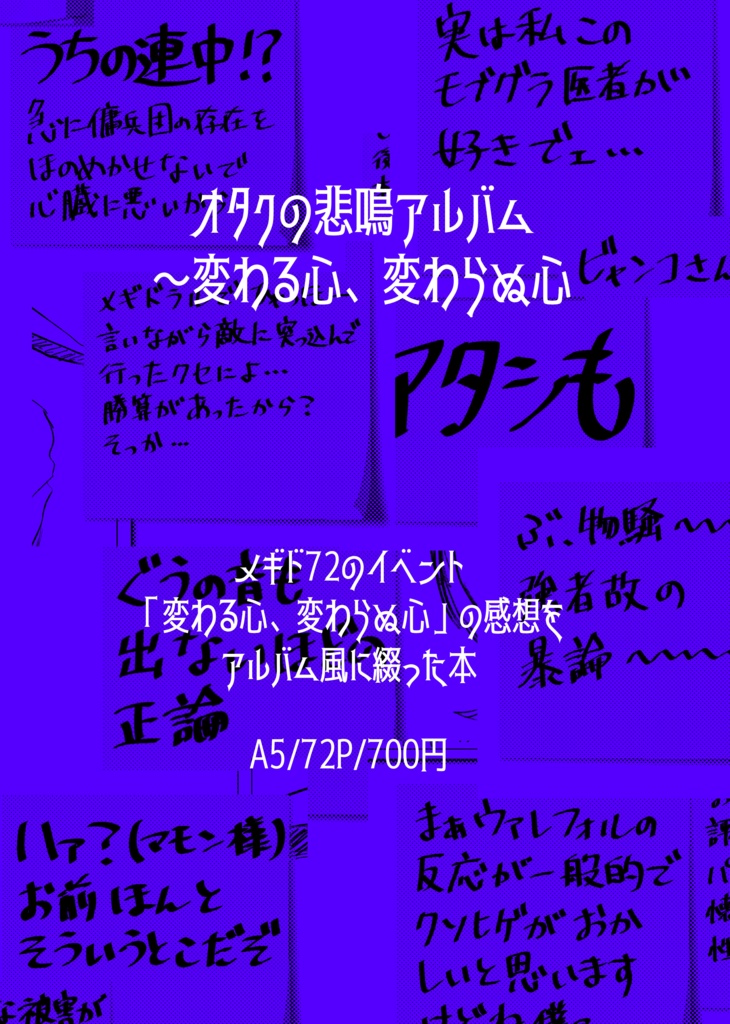 うちの連中!?
急に傭兵団の存在を
ほのめかせないで
心臓に悪いから
実は私この
モブグラ医者が
好きでェ…
オタクの悲鳴アルバム
～変わる心、変わらぬ心
ビャンコさん
言いながら敵に突っ込んで
行ったクセによ…
勝算があったから?
そっか…
アタシも
メギド72のイベント
「変わる心、変わらぬ心」の感想を
アルバム風に綴った本
A5/72P/700円
ぐうの音も
出ない
正論
ぶ、物騒～～
強者故の
暴論～～～
ハァ?(マモン様)
お前ほんと
そういうとこだぞ
な被害が
まぁヴァレフォルの
反応が一般的で
クソヒゲがおか
しいと思います
けどね僕っ